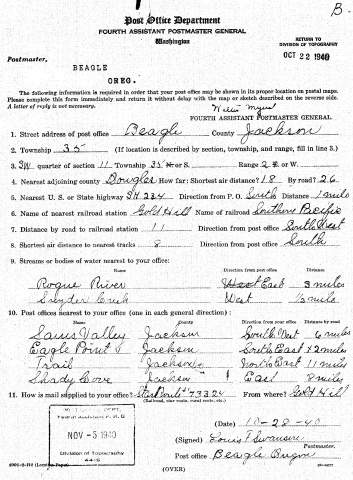 B.
Post Office Department
FOURTH ASSISTANT POSTMASTER GENERAL
Washington
RETURN TO
DIVISION OF TOPOGRAPHY
OCT 22 1940
Postmaster,
BEAGLE
OREG.
The following information is required in order that your post office may be shown in its proper location on postal maps.
Please complete this form immediately and return it without delay with the map or sketch described on the reverse side.
A letter of reply is not necessary.
FOURTH ASSISTANT POSTMASTER GENERAL
1. Street address of post office Beagle County Jackson
2. Township 35 (If location is described by section, township, and range, fill in line 3.)
3. SW quarter of section 11 Township 35 N or S. Range 2 E or W.
4. Nearest adjoining county Douglas How far: Shortest air distance? 18 By road? 26
5. Nearest U.S. or State highway SH 234 Direction from P.O. South Distance 1 mile
6. Name of nearest railroad station Gold Hill Name of railroad Southern Pacific
7. Distance by road to railroad station 11 Direction from post office South West
8. Shortest air distance to nearest tracks 8 Direction from post office South
9. Streams or bodies of water nearest to your office:
Name Direction from post office Distance
Rogue River East 3 miles
Snyder Creek West miles
10. Post offices nearest to your office (one in each general direction):
Name County Direction from your office Distance by road
Sams Valley Jackson South West 6 miles
Eagle Point Jackson South East 12 miles
Trail Jackson North East 11 miles
Shady Cove Jackson East 8 miles
11. How is mail supplied to your office? Star Route 73324 From where? Gold Hill
(Railroad, star route, rural route, etc.)
NOV -5 1940
Division of Topography
(Date) 10-28-40
(Signed) Louis T Swanson
Postmaster.
Post office Beagle Oregon
(OVER)